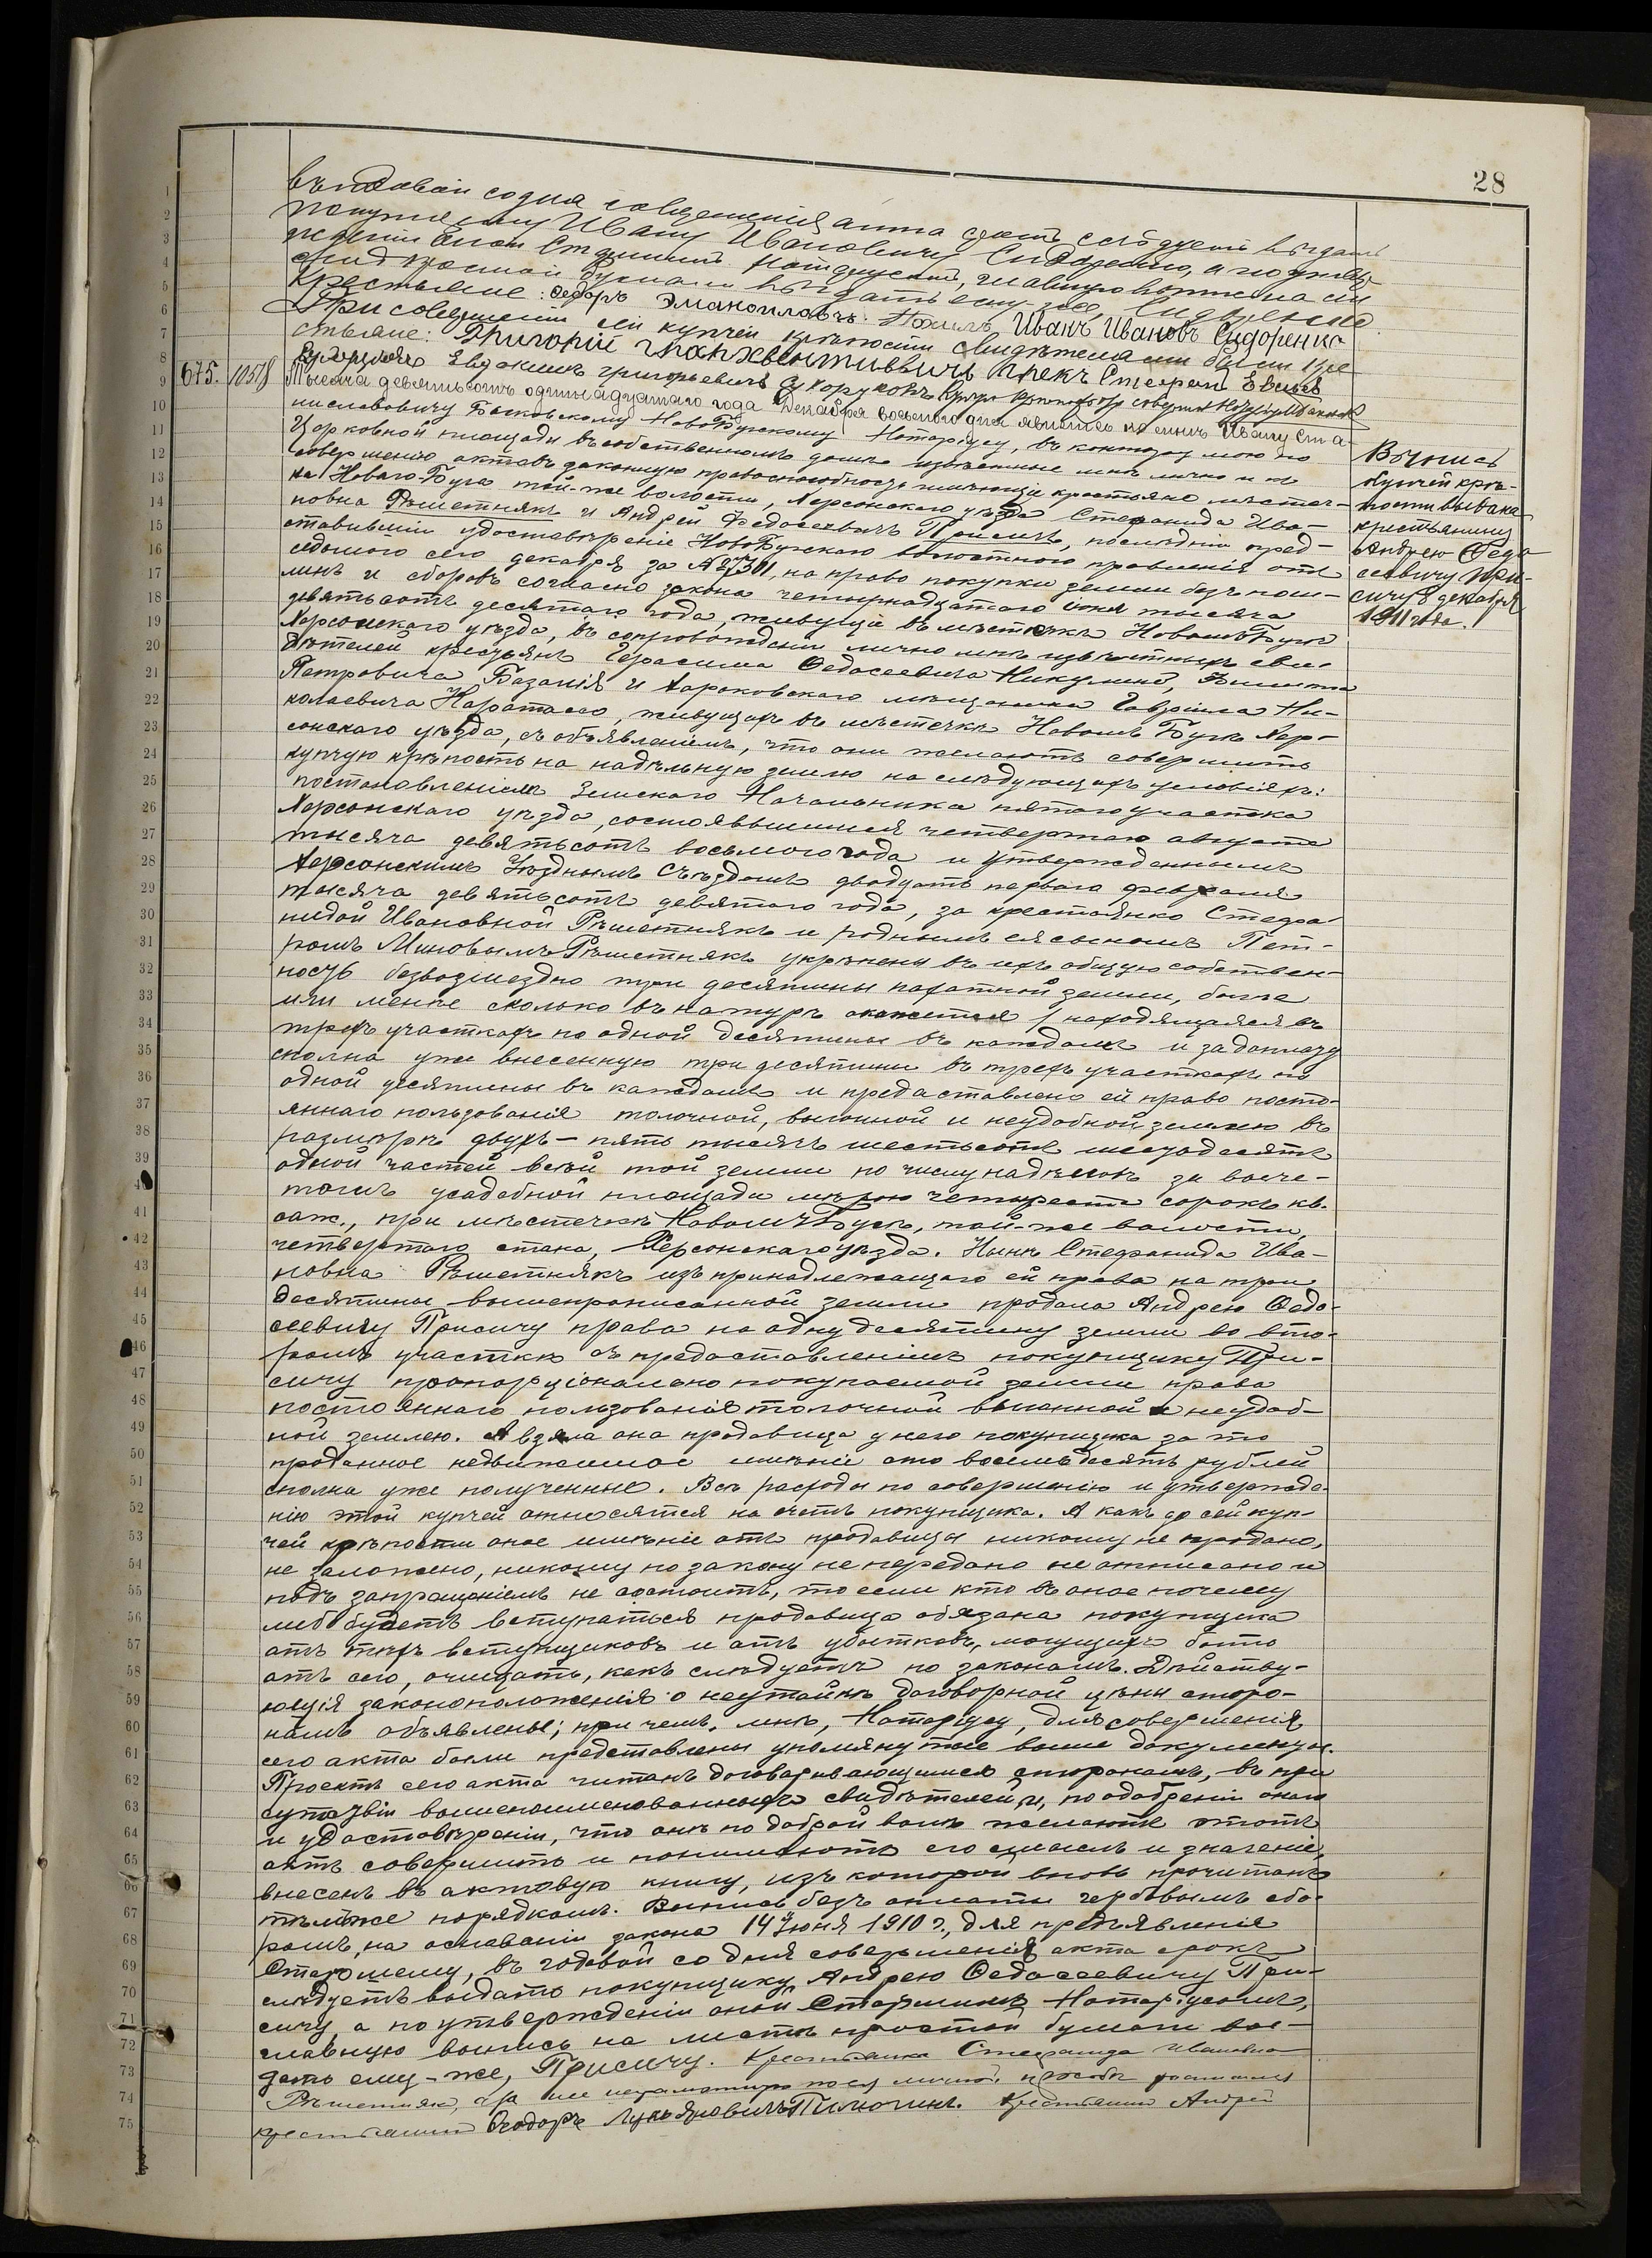 28
въ годовой со дня совершенія акта срокъ слѣдуетъ выдать
покупщику Ивану Ивановичу Сидоренко, а по утвер-
жденіи оной Старшимъ Нотаріусомъ, главную выпись на
простой бумагѣ выдать ему-же, Сидоренко.
Крестьяне: Федоръ Эмануиловъ Иванъ Ивановъ Сидоренко
При совершеніи сей купчей крѣпости свидѣтелями были кре-
стьяне: Григорій Евдокимъ Григорьевичъ Сукоруковъ Стефанъ
675. 1058
Тысяча девятьсотъ одиннадцатаго года Декабря восьмого дня явились ко мнѣ Ивану Ста-
ниславовичу Быковскому НовоБугскому Нотаріусу, въ контору мою по
Церковной площади въ собственномъ домѣ извѣстные мнѣ лично и къ
совершенію актовъ законную правоспособность имѣющіе крестьяне мѣстеч-
ка Новаго-Буга той-же волости, Херсонскаго уѣзда Стефанида Ива-
новна Рѣшетнякъ и Андрей Федосеевичъ Присичъ, послѣдній пред-
ставившій удостовѣреніе НовоБугскаго волостного правленія отъ
седьмого сего декабря за № 27301, на право покупки земли безъ пош-
линъ и сборовъ согласно закона четырнадцатаго іюня тысяча
девятьсотъ десятаго года, живущіе въ мѣстечкѣ Новомъ-Бугѣ
Херсонскаго уѣзда, въ сопровожденіи лично мнѣ извѣстныхъ сви-
дѣтелей крестьянъ Герасима Федосеевича Никулина,
Петровича Базалія и мѣщанина Гавріила Ни-
колаевича Каратасо, живущихъ въ мѣстечкѣ Новомъ Бугѣ Хер-
сонскаго уѣзда, съ объявленіемъ, что они желаютъ совершить
купчую крѣпость на надѣльную землю на слѣдующихъ условіяхъ:
постановленіемъ Земскаго Начальника пятаго участка
Херсонскаго уѣзда, состоявшимся четвертаго августа
тысяча девятьсотъ восьмого года и утвержденнымъ
Херсонскимъ Уѣзднымъ Съѣздомъ двадцать перваго февраля
тысяча девятьсотъ девятаго года, за крестьянкою Стефа-
нидой Ивановной Рѣшетнякъ и роднымъ ея сыномъ Пет-
ромъ Миновымъ Рѣшетнякъ укрѣплены въ ихъ общую собствен-
ность безвозмездно три десятины пахатной земли, болѣе
или менѣе сколько въ натурѣ окажется, находящаяся въ
трехъ участкахъ по одной десятинѣ въ каждомъ и за доплату
сполна уже внесенную три десятины въ трехъ участкахъ по
одной десятинѣ въ каждомъ и предоставлено ей право посто-
яннаго пользованія толочной, выгонной и неудобной землею въ
размѣрѣ двухъ-пять тысячъ шестьсотъ шестьдесятъ
одной частей всей той земли по числу надѣловъ за выче-
томъ усадебной площади мѣрою четыреста сорокъ кв.
саж., при мѣстечкѣ Новомъ-Бугѣ, той-же волости,
четвертаго стана, Херсонскаго уѣзда. Нынѣ Стефанида Ива-
новна Рѣшетнякъ изъ принадлежащаго ей права на три
десятины вышепрописанной земли продала Андрею Федо-
сеевичу Присичу права на одну десятину земли во вто-
ромъ участкѣ съ предоставленіемъ покупщику При-
сичу пропорціонально покупаемой земли права
постояннаго пользованія толочной выгонной и неудоб-
ной землею. А взяла она продавица у него покупщика за то
проданное недвижимое имѣніе сто восемьдесятъ рублей
сполна уже полученные. Всѣ расходы по совершенію и утвержде-
нію этой купчей относятся на счетъ покупщика. А какъ до сей куп-
чей крѣпости оное имѣніе отъ продавицы никому не продано,
не заложено, никому по закону не передано не отписано и
подъ запрещеніемъ не состоитъ, то если кто въ оное почему
либо будетъ вступаться продавица обязана покупщика
отъ тѣхъ вступщиковъ и отъ убытковъ, могущихъ быть
отъ сего, очищать, какъ слѣдуетъ по законамъ. Дѣйству-
ющія законоположенія о неутайкѣ договорной цѣны сторо-
намъ объявлены; при чемъ, мнѣ, Нотаріусу, для совершенія
сего акта были представлены упомянутые выше документы.
Проектъ сего акта читанъ договаривающимся сторонамъ, въ при
сутствіи вышепоименованныхъ свидѣтелей, и, по одобреніи онаго
и удостовѣреніи, что они по доброй волѣ желаютъ этотъ
актъ совершить и понимаютъ его смыслъ и значеніе,
внесенъ въ актовую книгу, изъ которой вновь прочитанъ
тѣмъ же порядкомъ. Выпись безъ оплаты гербовымъ сбо-
ромъ, на основаніи закона 14 Іюня 1910 г., для предъявленія
Старшему, въ годовой со дня совершенія акта срокъ
слѣдуетъ выдать покупщику Андрею Федосеевичу При-
сичу, а по утвержденіи оной Старшимъ Нотаріусомъ,
главную выпись на листѣ простой бумаги вы-
дать ему-же, Присичу. Крестьянка Стефанида Ивановна
Рѣшетнякъ, а за нее неграмотную по ея личной просьбѣ росписался
крестьянинъ Федоръ Лукьяновичъ Пилюгинъ. Крестьянинъ Андрей
Выпись
купчей крѣ-
пости выдана
крестьянину
Андрею Федо
сеевичу При-
сичу 8 декабря
1911 года.